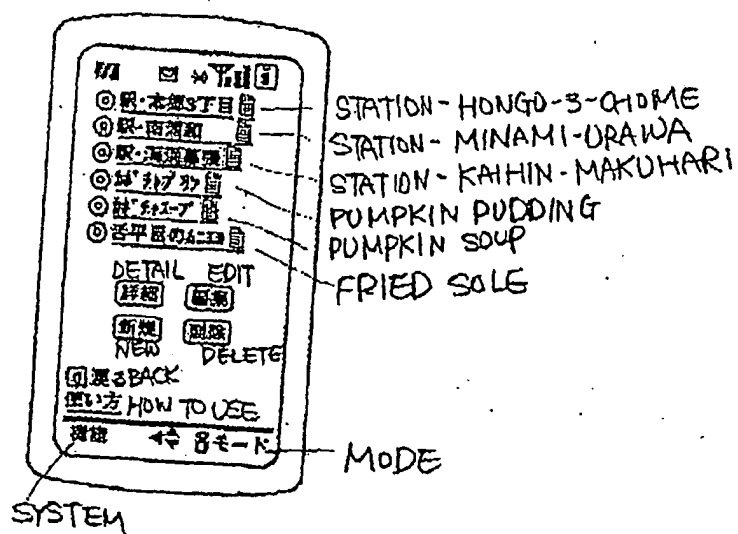 駅・本郷3丁目 STATION-HONGO-3-CHOME
駅-南浦和 STATION-MINAMI-URAWA
駅・海浜幕張 STATION-KAIHIN-MAKUHARI
PUMPKIN PUDDING
PUMPKIN SOUP
舌平目のムニエル FRIED SOLE
DETAIL EDIT
詳細 編集
新規 削除
NEW DELETE
戻る BACK
使い方 HOW TO USE
モード MODE
SYSTEM